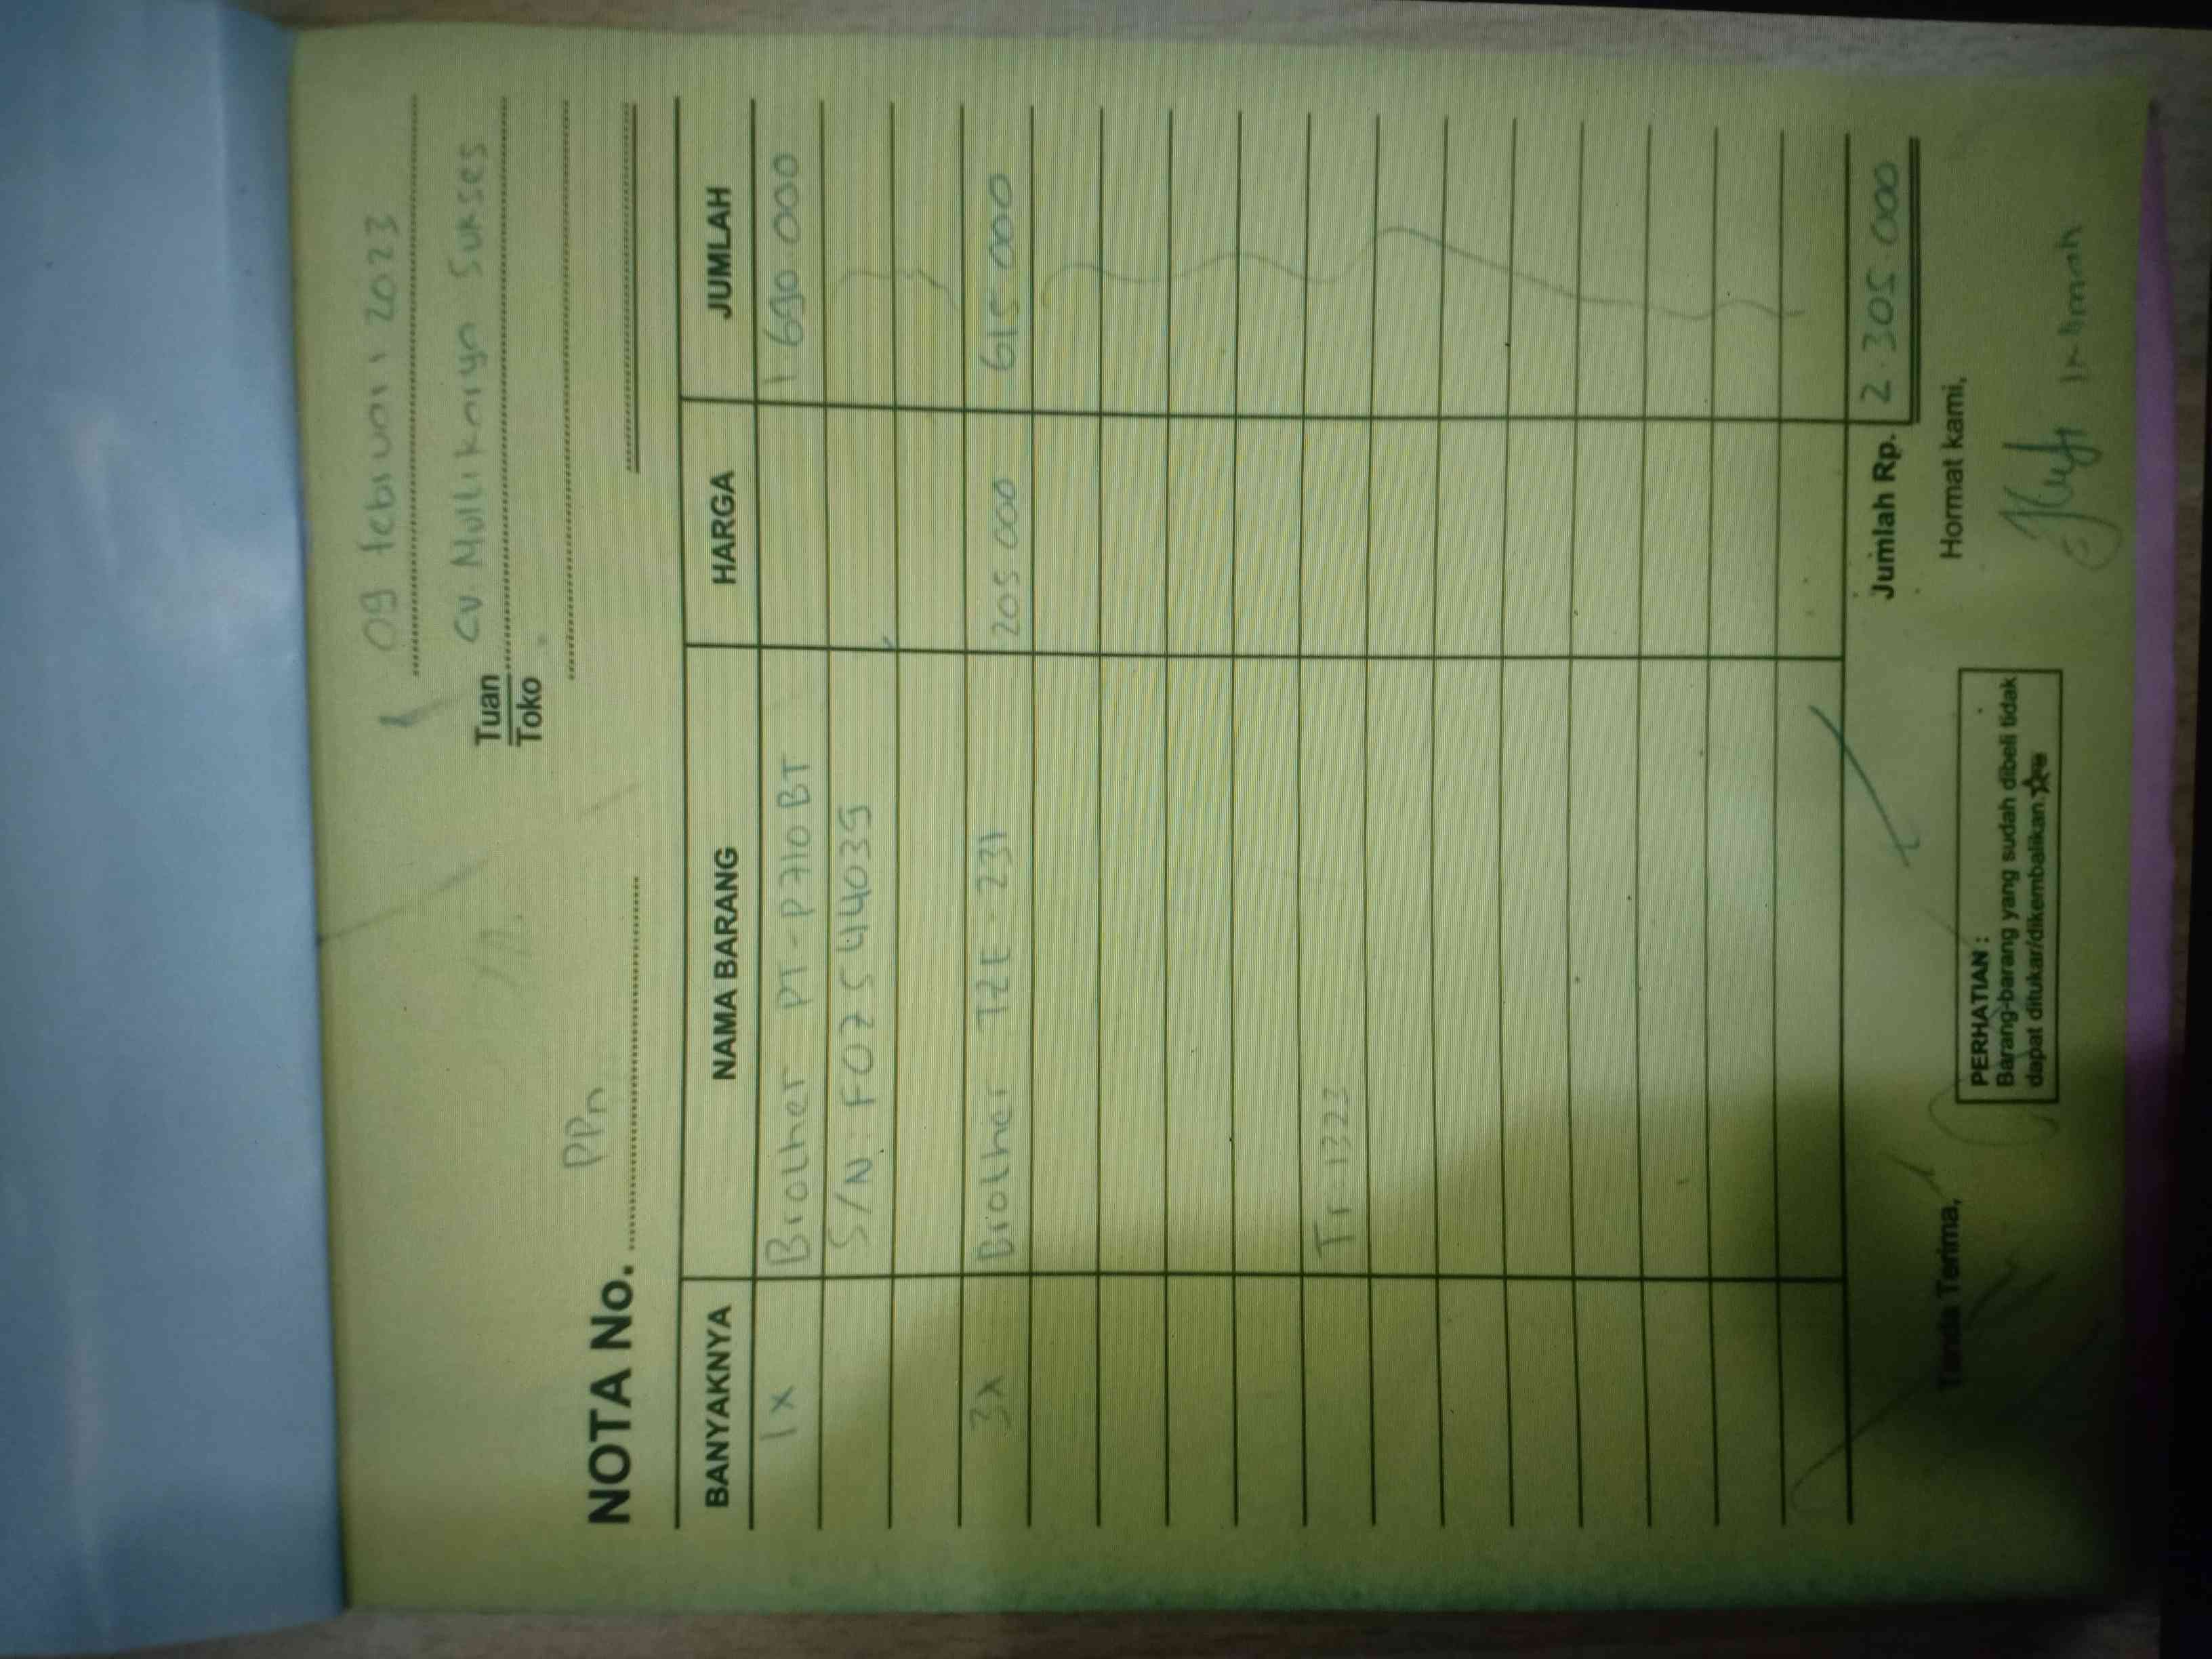 09 Februari 2023
Tuan CV Multi Karya Sukses
Toko
PPn
NOTA No.
BANYAKNYA NAMA BARANG HARGA JUMLAH
1x Brother PT-P710BT 1.690.000
S/N: F0Z544039
3x Brother TZE-231 205.000 615.000
Tr:1323
Jumlah Rp. 2.305.000
Tanda Terima, Hormat kami,
PERHATIAN :
Barang-barang yang sudah dibeli tidak
dapat ditukar/dikembalikan.